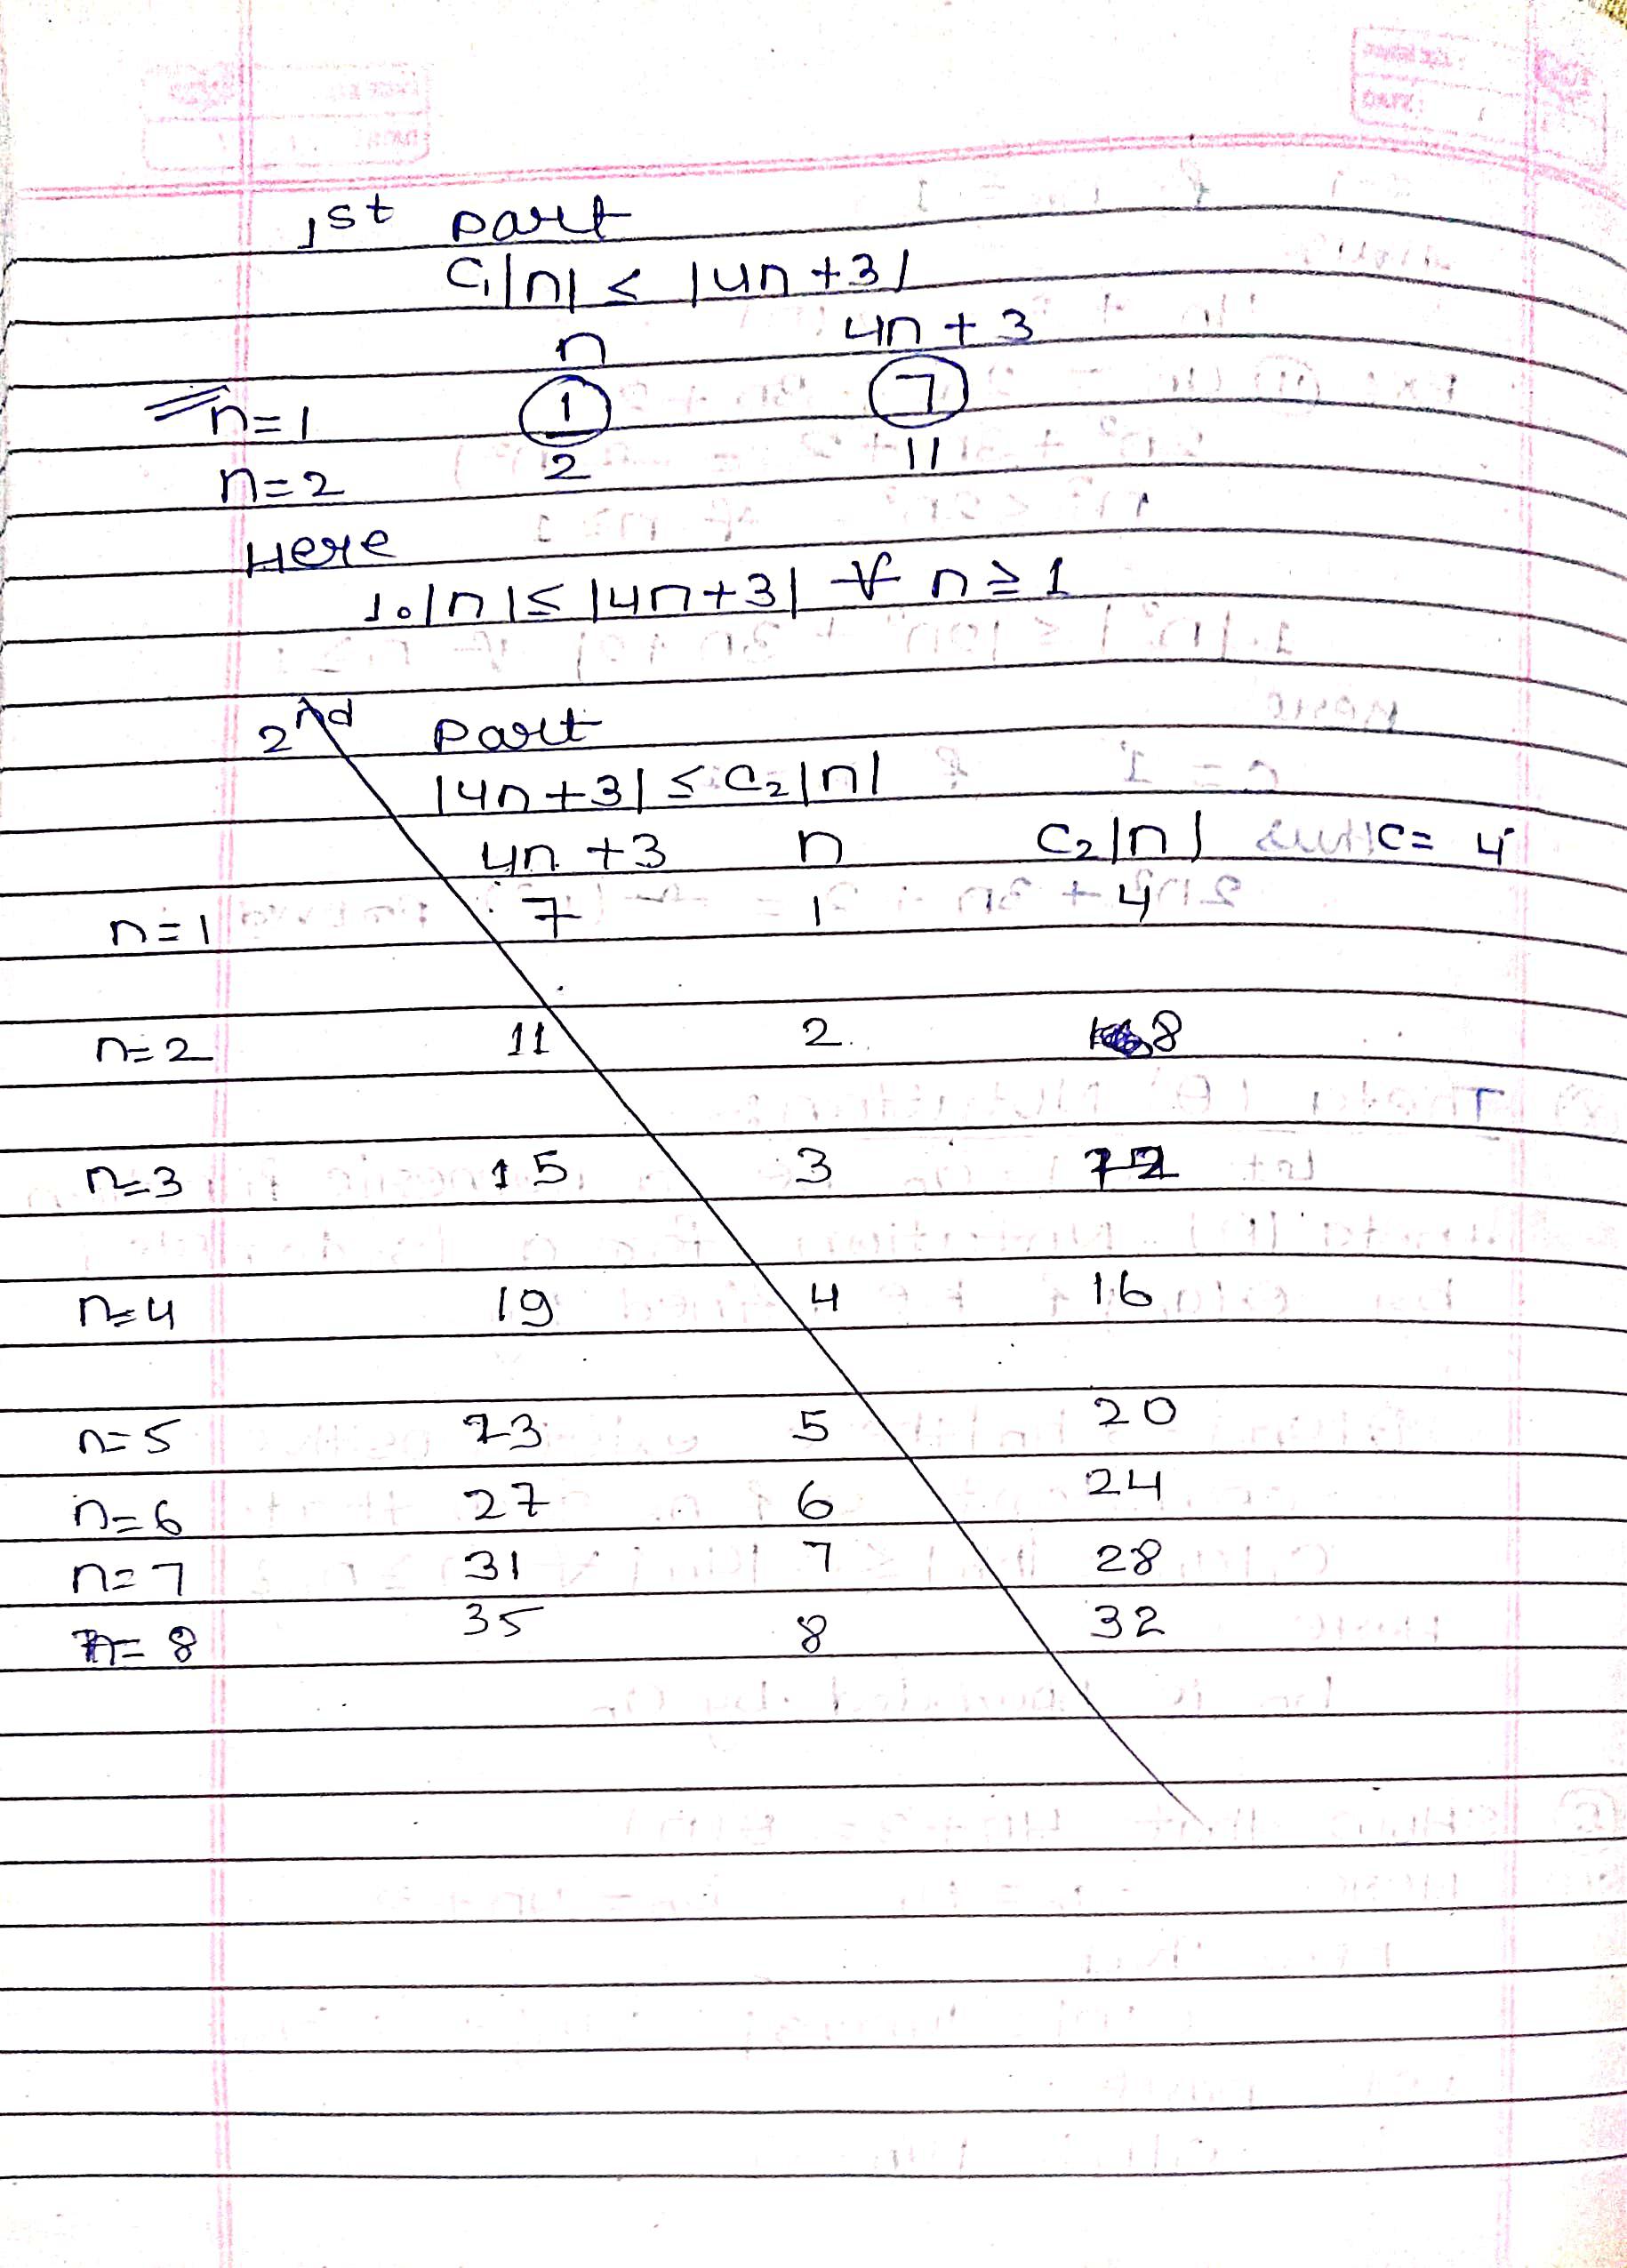 1st part
C₁|n| ≤ |4n+3|
n 4n+3
n=1 1 7
n=2 2 11
Here
1.|n| ≤ |4n+3| ∀ n ≥ 1
2nd part
|4n+3| ≤ C₂|n|
4n+3 n C₂|n| C=4
n=1 7 1 4
n=2 11 2 8
n=3 15 3 12
n=4 19 4 16
n=5 23 5 20
n=6 27 6 24
n=7 31 7 28
n=8 35 8 32